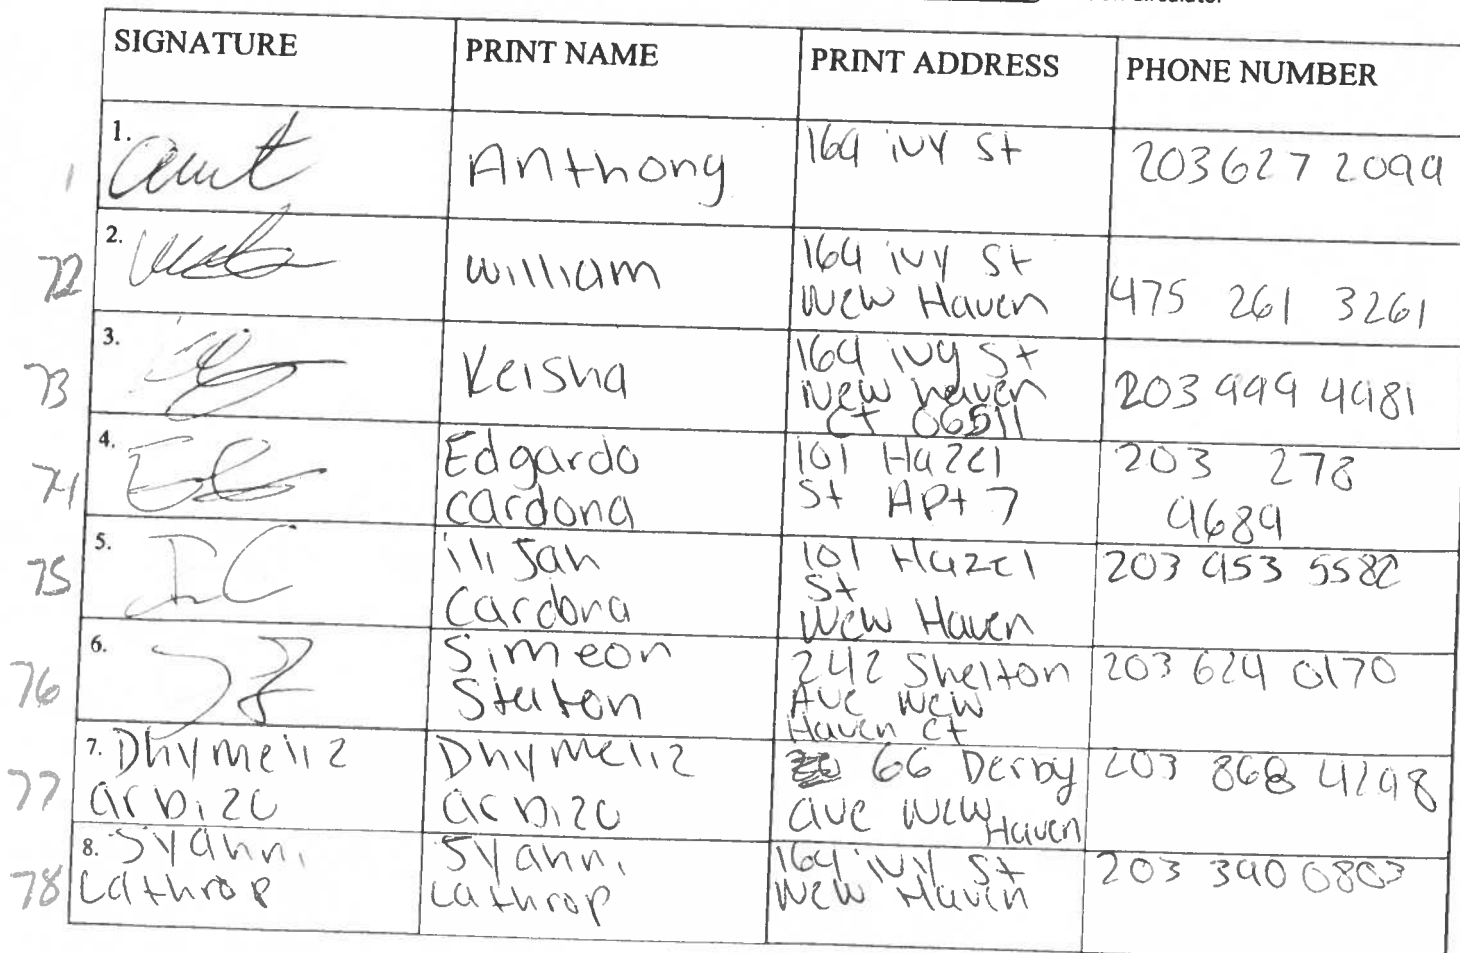 SIGNATURE PRINT NAME PRINT ADDRESS PHONE NUMBER
1. Anthony 164 ivy St 203 627 2099
72 2. William 164 ivy St
New Haven 475 261 3261
73 3. Keisha 164 ivy St
New haven
CT 06511 203 999 4981
74 4. Edgardo
Cardona 101 Hazel
St APt 7 203 278
9689
75 5. ili Jan
Cardona 101 Hazel
St
New Haven 203 953 5582
76 6. Simeon
Staton 242 Shelton
Ave New
Haven Ct 203 624 0170
77 7. Dhymeliz
arbizo Dhymeliz
arbizo 66 Derby
ave New
Haven 203 868 4298
78 8. Syahni
Lathrop Syahni
Lathrop 164 ivy St
New Haven 203 390 0803